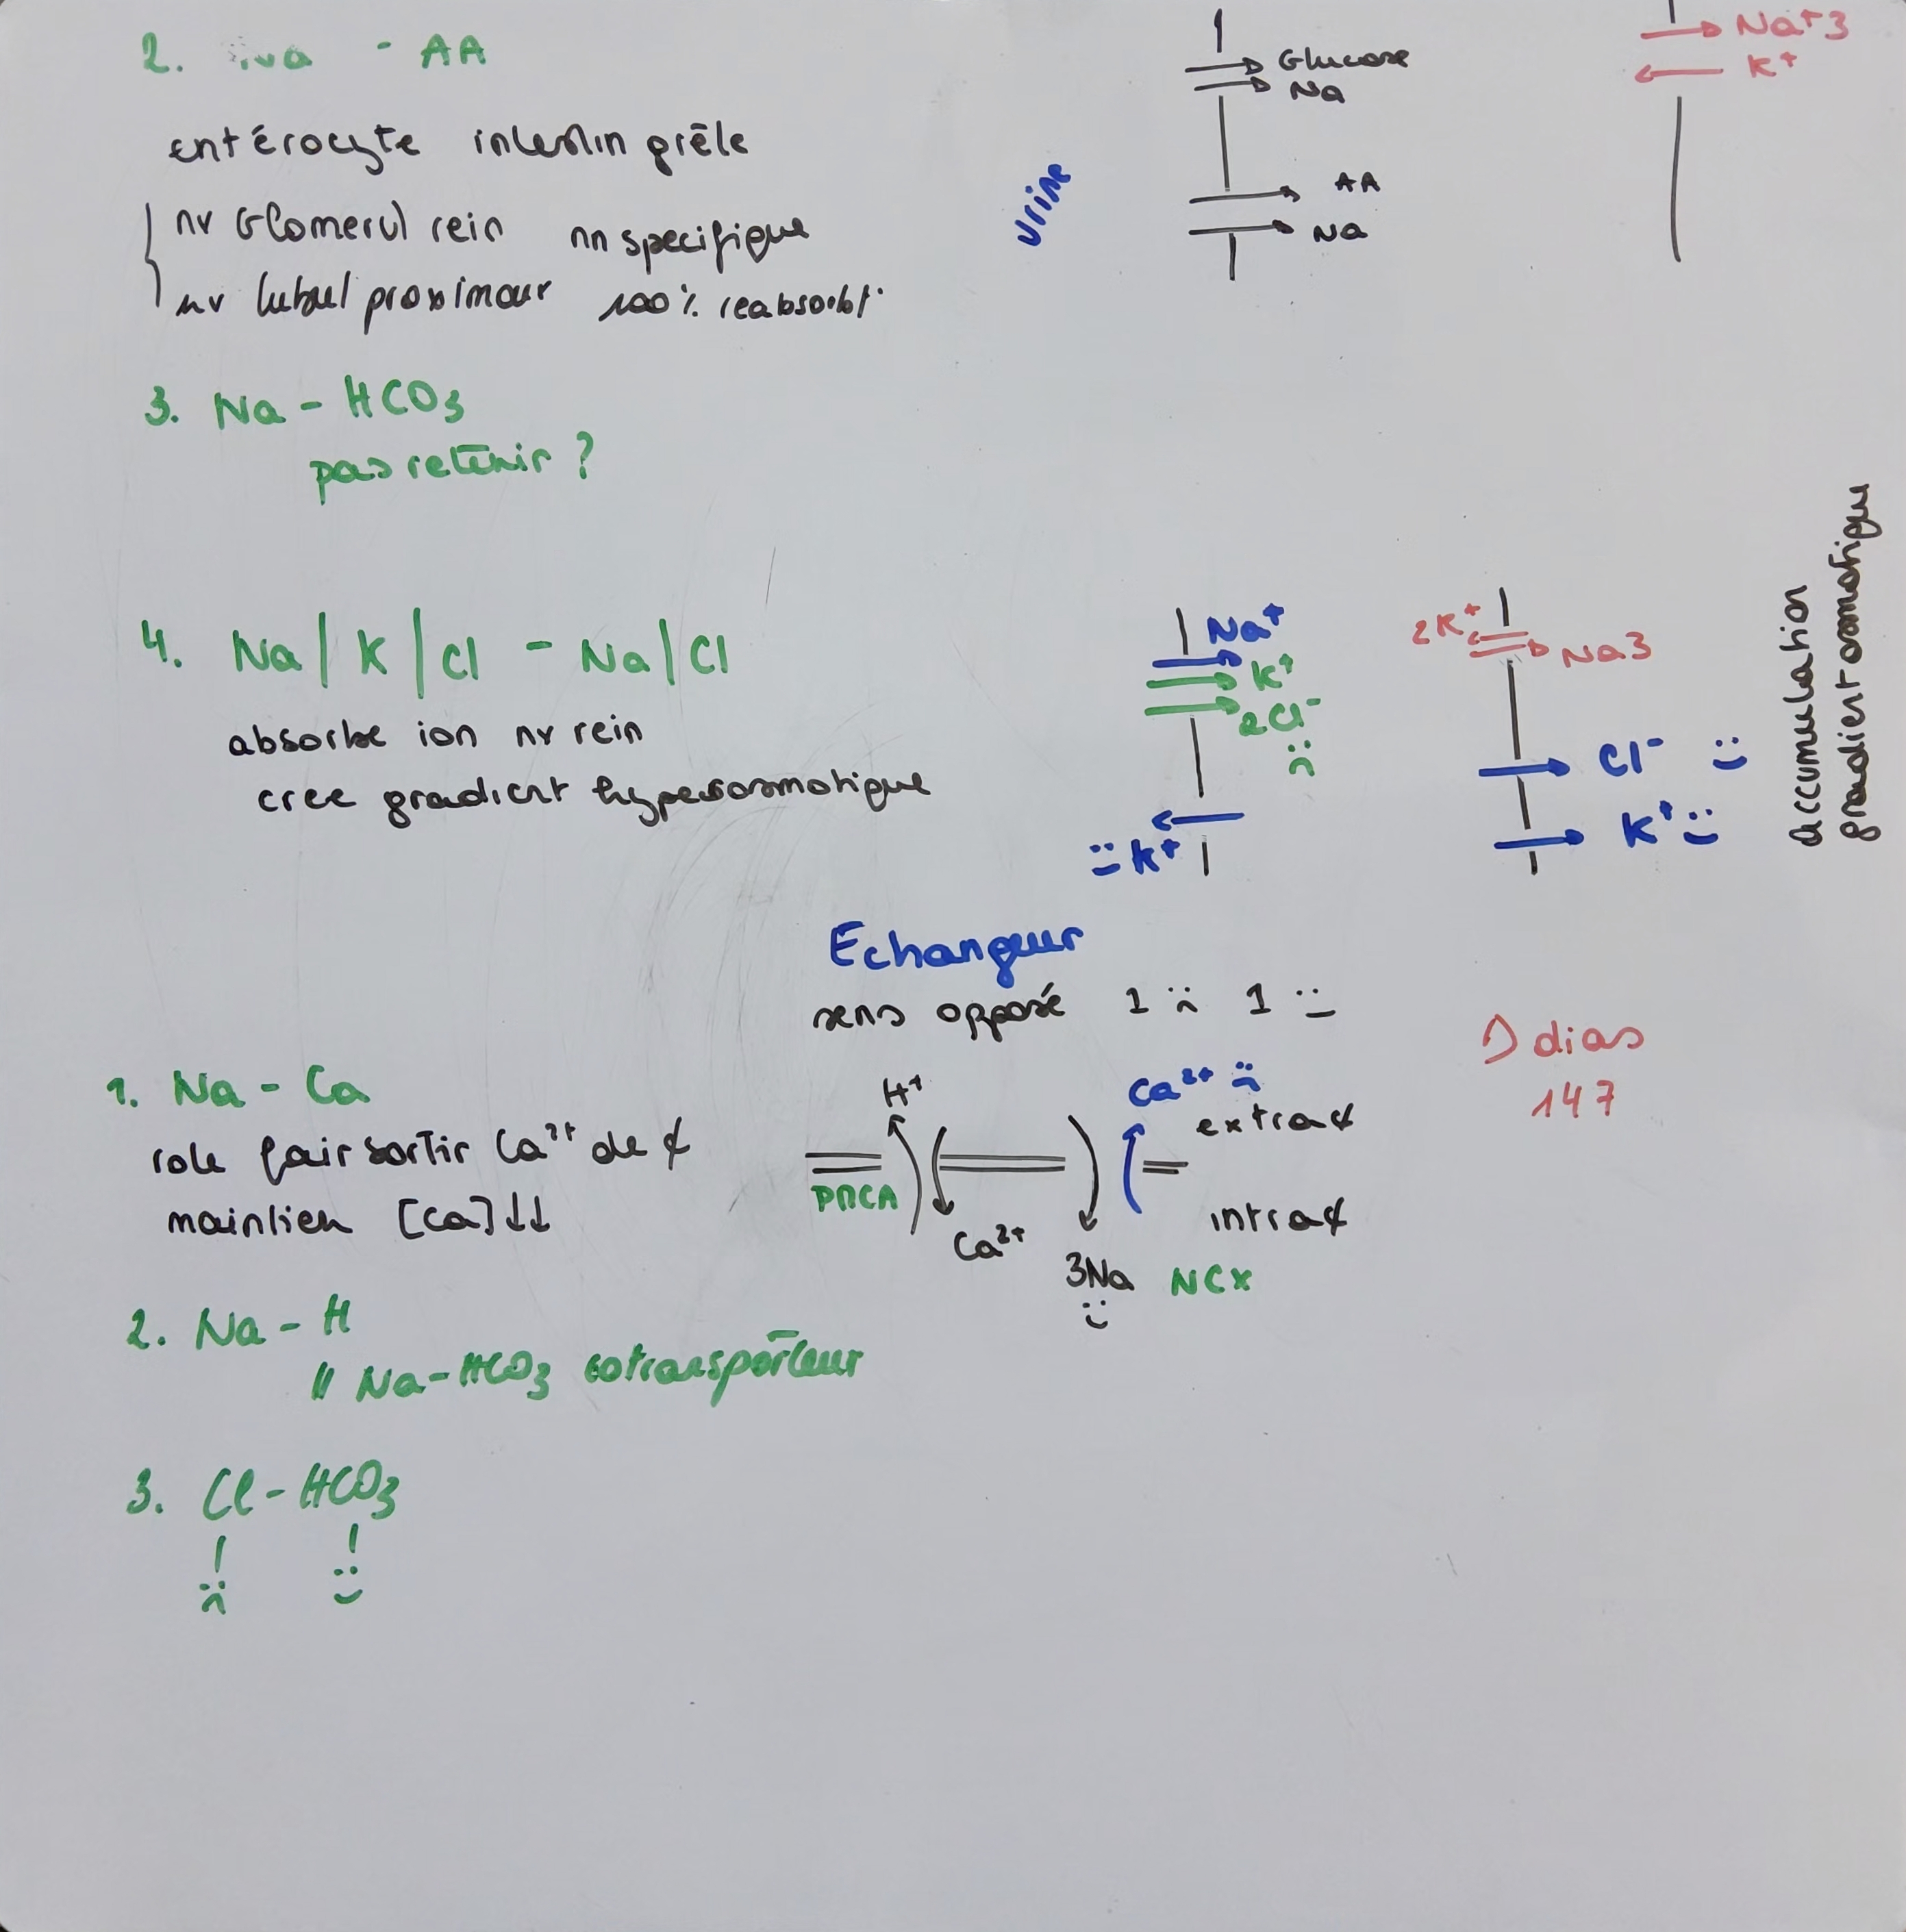 2. Na - AA
entérocyte intestin grêle
nv Glomerul rein nn specifique
nv tubul proximaux 100% reabsorbt°
urine
Glucose
Na
AA
Na
Na+3
K+
3. Na - HCO3
pas retenir ?
4. Na | K | Cl - Na | Cl
absorbe ion nv rein
cree gradient hyperosmotique
Na+
K+
2Cl-
K+
2K+
Na3
Cl-
K+
accumulation
gradient osmotique
Echangeur
sens opposé 1 :( 1 :)
dias
147
1. Na - Ca
role fair sortir Ca2+ de ¢
maintien [Ca]↓↓
H+
PMCA
Ca2+
Ca2+
extra¢
intra¢
3Na NCX
2. Na - H
// Na-HCO3 cotransporteur
3. Cl - HCO3